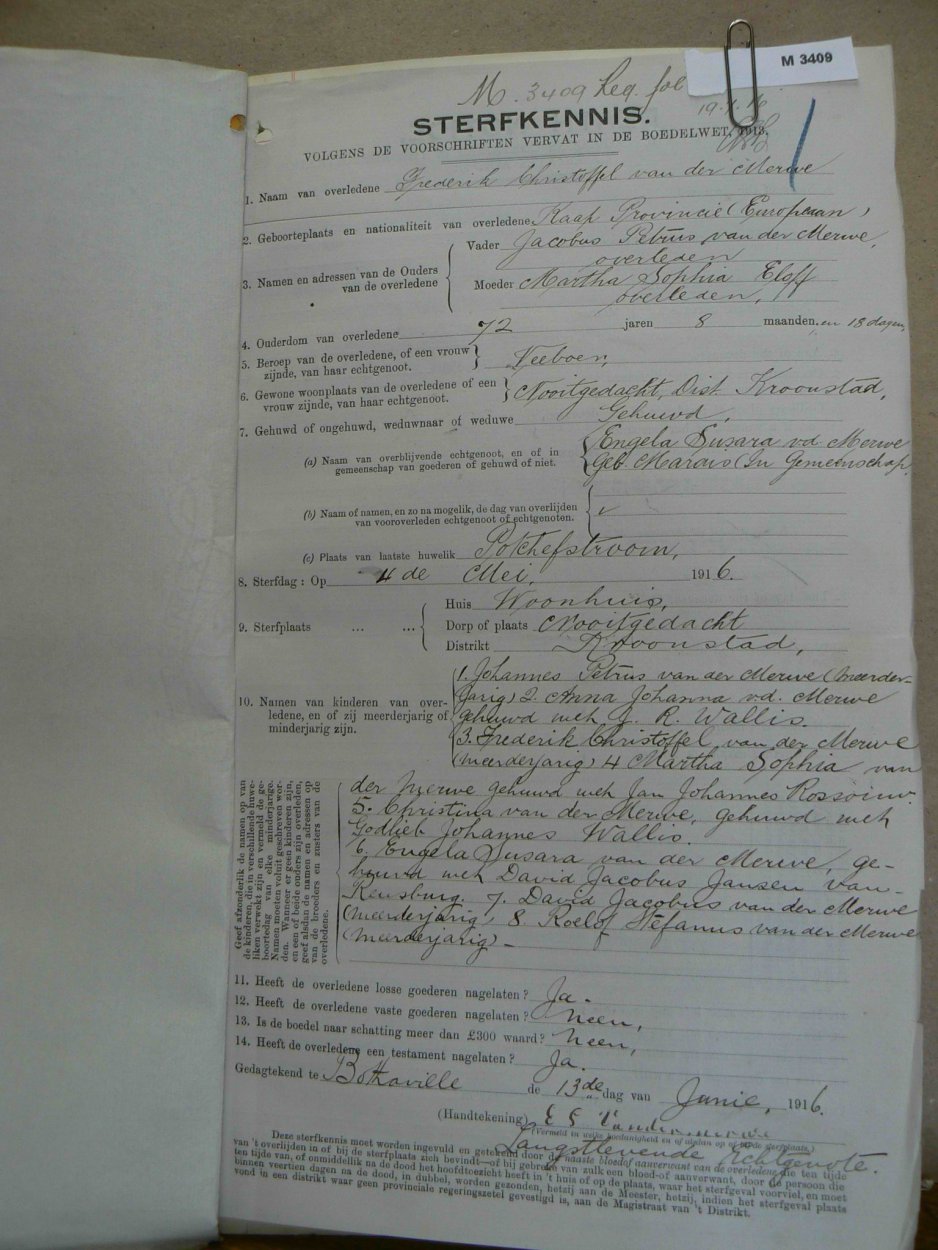 M 3409
M. 3409 Reg. fol
19.1.16
STERFKENNIS.
VOLGENS DE VOORSCHRIFTEN VERVAT IN DE BOEDELWET, 1913.
1. Naam van overledene Frederik Christoffel van der Merwe
2. Geboorteplaats en nationaliteit van overledene Kaap Provincie (European)
3. Namen en adressen van de Ouders van de overledene
Vader Jacobus Petrus van der Merwe,
overleden
Moeder Martha Sophia Eloff
overleden,
4. Ouderdom van overledene 72 jaren 8 maanden, en 18 dagen,
5. Beroep van de overledene, of een vrouw
zijnde, van haar echtgenoot. Veeboer,
6. Gewone woonplaats van de overledene of een
vrouw zijnde, van haar echtgenoot. Nooitgedacht, Dist. Kroonstad,
7. Gehuwd of ongehuwd, weduwnaar of weduwe Gehuwd,
(a) Naam van overblijvende echtgenoot, en of in
gemeenschap van goederen of gehuwd of niet.
Engela Susara vd. Merwe
Geb. Marais (In Gemeenschap
(b) Naam of namen, en zo na mogelik, de dag van overlijden
van vooroverleden echtgenoot of echtgenoten.
(c) Plaats van laatste huwelik Potchefstroom,
8. Sterfdag : Op 4 de Mei, 1916.
9. Sterfplaats ... ...
Huis Woonhuis,
Dorp of plaats Nooitgedacht
Distrikt Kroonstad,
10. Namen van kinderen van over-
ledene, en of zij meerderjarig of
minderjarig zijn.
1. Johannes Petrus van der Merwe (Meerder-
jarig) 2. Anna Johanna vd. Merwe
gehuwd meh J. R. Wallis.
3. Frederik Christoffel van der Merwe
(meerderjarig) 4 Martha Sophia van
der Merwe gehuwd meh Jan Johannes
5. Christina van der Merwe, gehuwd meh
Godlieb Johannes Wallis.
6. Engela Susara van der Merwe, ge-
huwd meh David Jacobus Jansen van
Rensburg. 7. David Jacobus van der Merwe
(meerderjarig), 8. Roelof Stefanus van der Merwe
(meerderjarig) -
Geef afzonderlik de namen op van
de kinderen, die in verschillende huwe-
liken verwekt zijn en vermeld de ge-
boortedag van elke minderjarige.
Namen moeten voluit geschreven wor-
den. Wanneer er geen kinderen zijn,
en een of beide ouders zijn overleden,
geef alsdan de namen en adressen op
van de broeders en zusters van de
overledene.
11. Heeft de overledene losse goederen nagelaten? Ja.
12. Heeft de overledene vaste goederen nagelaten? Neen,
13. Is de boedel naar schatting meer dan £300 waard? Neen,
14. Heeft de overledene een testament nagelaten? Ja.
Gedagtekend te Bothaville de 13de dag van Junie, 1916.
(Handtekening) E S Vandermerwe
(Vermeld in welke hoedanigheid en of alsdan op of bij de sterfplaats.)
Langstlevende Echtgenote.
Deze sterfkennis moet worden ingevuld en getekend door de naaste bloedof aanverwant van de overledene, die ten tijde
van 't overlijden in of bij de sterfplaats zich bevindt—of bij gebreke van zulk een bloed-of aanverwant, door de persoon die
ten tijde van, of onmiddellik na de dood het hoofdtoezicht heeft in 't huis of op de plaats, waar het sterfgeval voorviel, en moet
binnen veertien dagen na de dood, in dubbel, worden gezonden, hetzij aan de Meester, hetzij, indien het sterfgeval plaats
vond in een distrikt waar geen provinciale regeringszetel gevestigd is, aan de Magistraat van 't Distrikt.